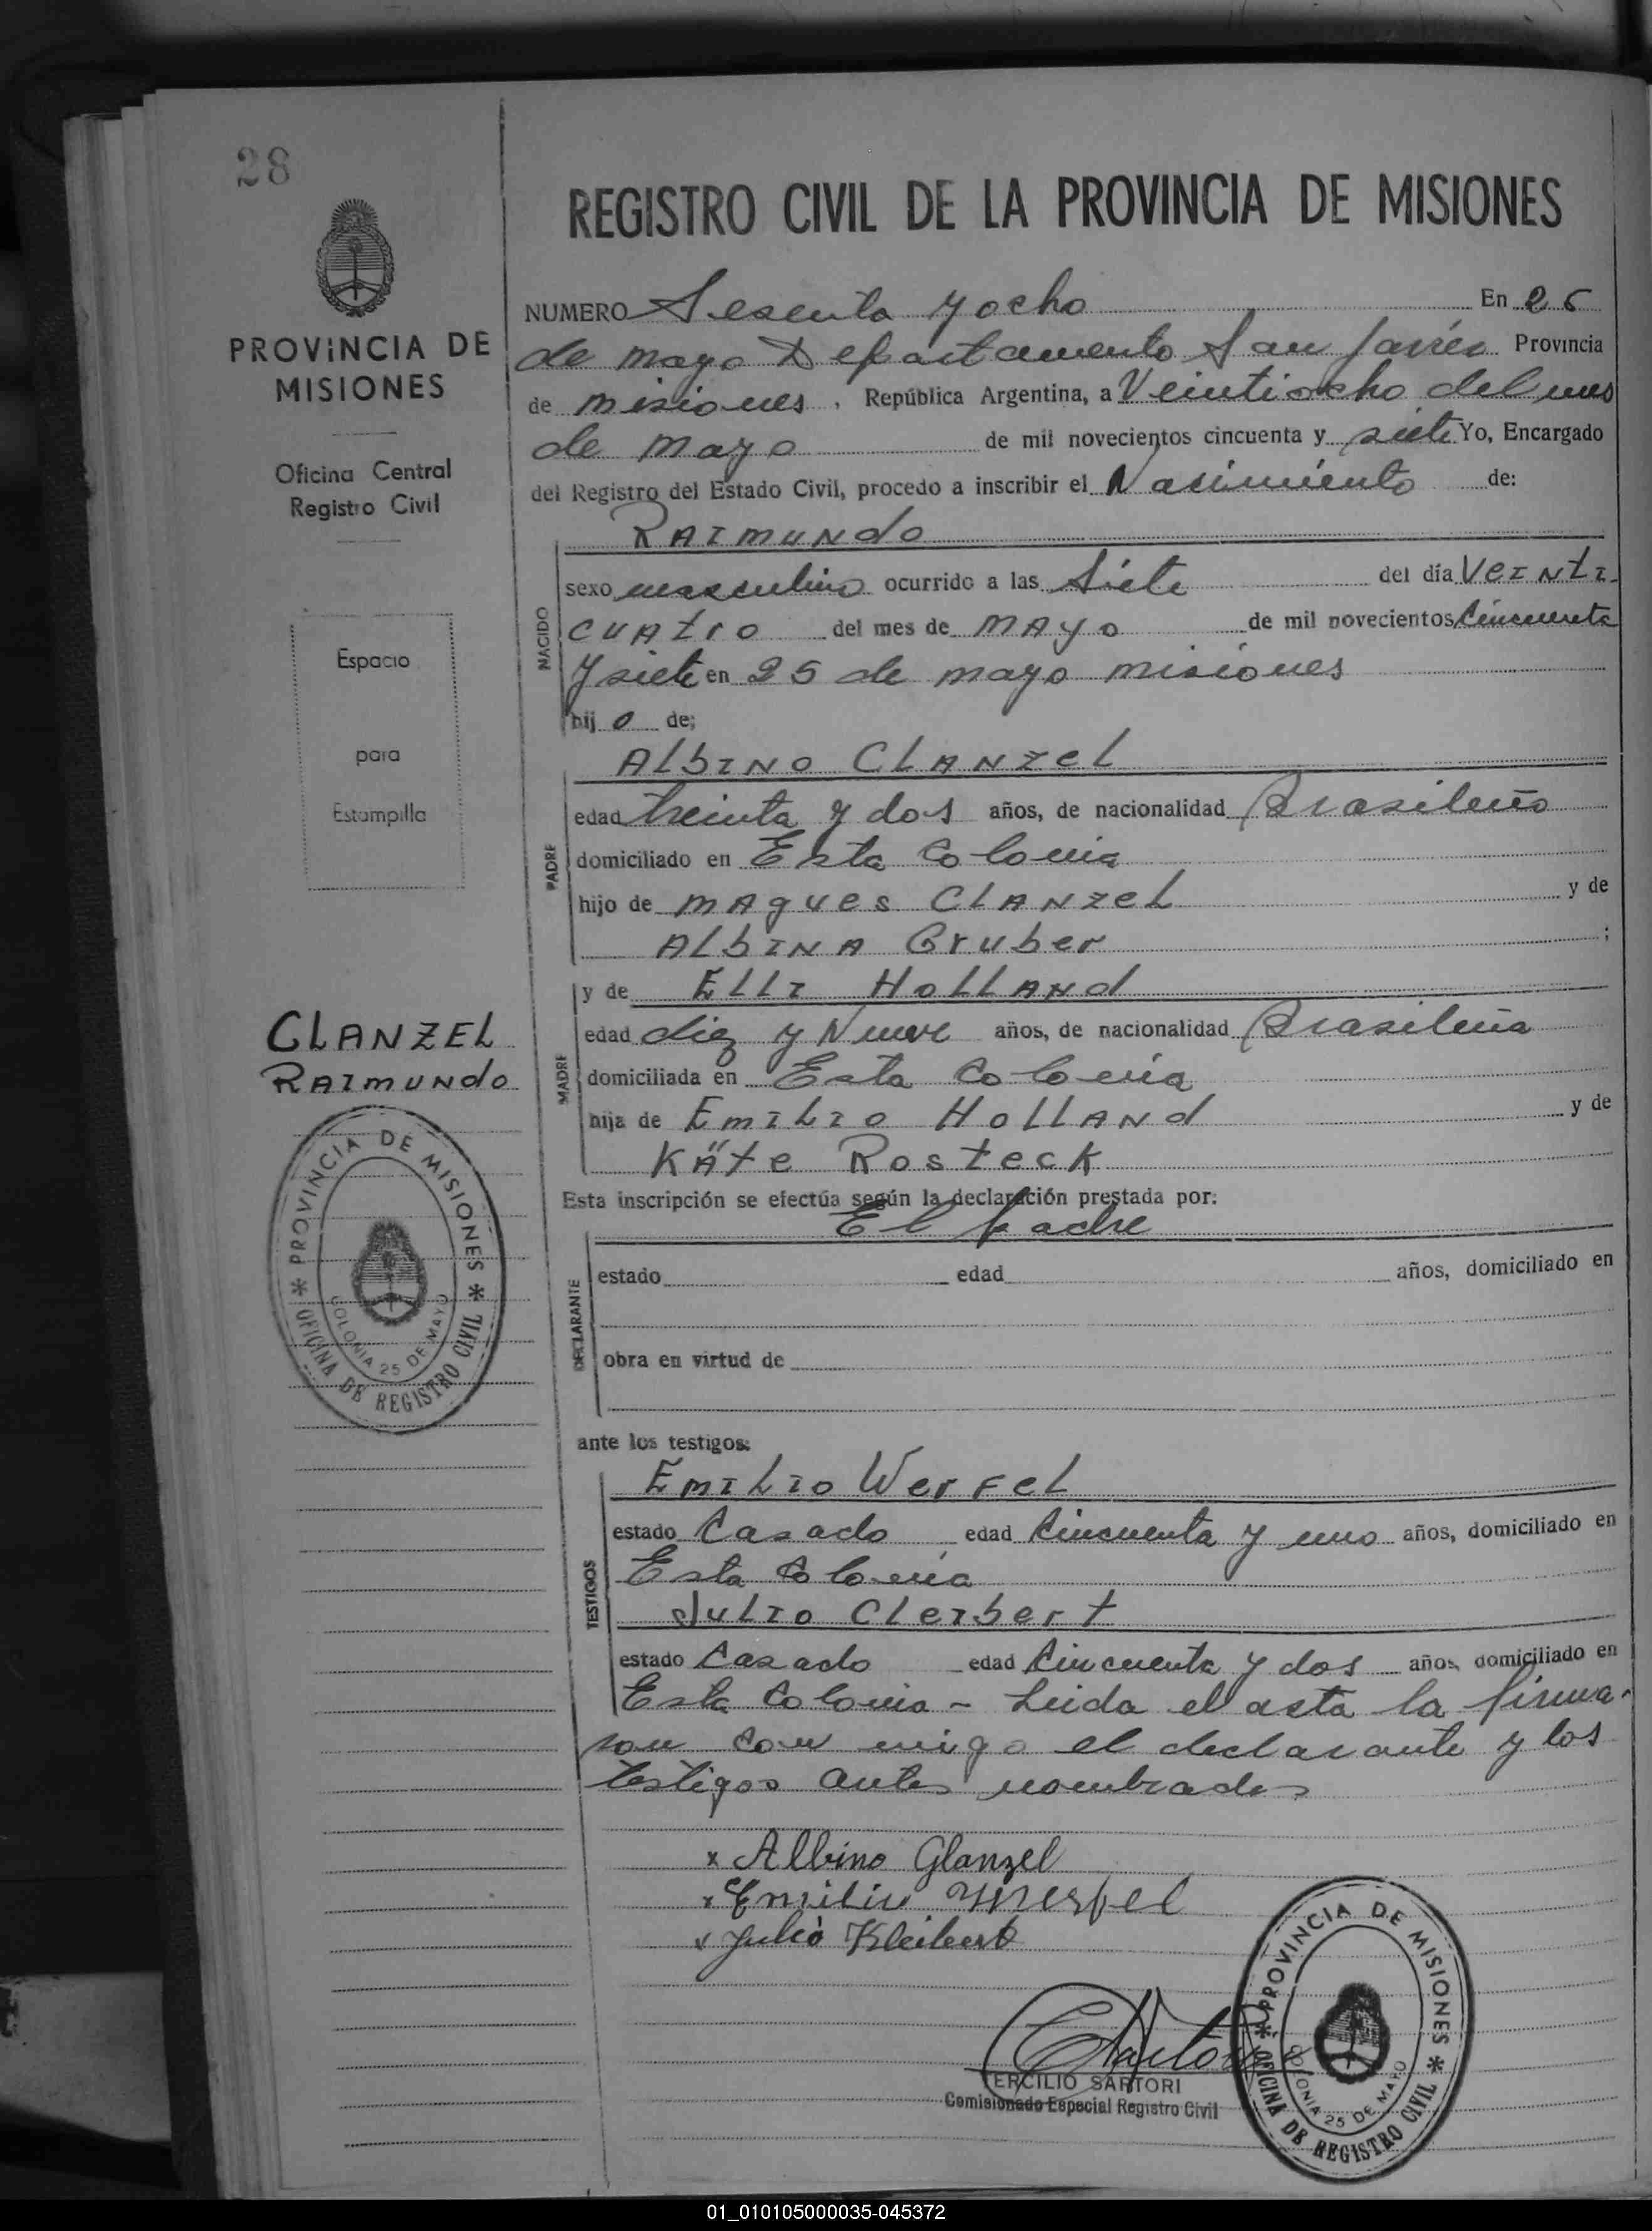 28
PROVINCIA DE
MISIONES
Oficina Central
Registro Civil
Espacio
para
Estampilla
CLANZEL
RAIMUNdo
PROVINCIA DE MISIONES
COLONIA 25 DE MAYO
OFICINA DE REGISTRO CIVIL
REGISTRO CIVIL DE LA PROVINCIA DE MISIONES
NUMERO Sesenta y ocho En 25
de mayo Departamento San Javier Provincia
de misiones, República Argentina, a Veintiocho del mes
de mayo de mil novecientos cincuenta y siete Yo, Encargado
del Registro del Estado Civil, procedo a inscribir el Nacimiento de:
RAIMUNdo
NACIDO
sexo masculino ocurrido a las Siete del día VeINtI
CUAtro del mes de MAyo de mil novecientos Cincuenta
y siete en 25 de mayo misiones
hij o de;
AlbINo CLANzeL
PADRE
edad treinta y dos años, de nacionalidad Brasileño
domiciliado en Esta Colonia
hijo de MAgues CLANzeL y de
ALbINA Gruber ;
MADRE
y de ELLI HoLLANd
edad diez y Nueve años, de nacionalidad Brasileña
domiciliada en Esta Colonia
hija de EmILIo HoLLANd y de
KÄte Rosteck
Esta inscripción se efectúa según la declaración prestada por:
El padre
DECLARANTE
estado edad años, domiciliado en
obra en virtud de
ante los testigos:
EmILIo WerFeL
TESTIGOS
estado Casado edad Cincuenta y uno años, domiciliado en
Esta Colonia
JuLIo CLeIbert
estado Casado edad Cincuenta y dos años, domiciliado en
Esta Colonia - Leida el acta la firma-
ron con migo el declarante y los
testigos antes nombrados
x Albino Glanzel
x Emilio Werfel
x Julio Kleibert
ERCILIO SARTORI
Comisionado Especial Registro Civil
PROVINCIA DE MISIONES
COLONIA 25 DE MAYO
OFICINA DE REGISTRO CIVIL
01_010105000035-045372